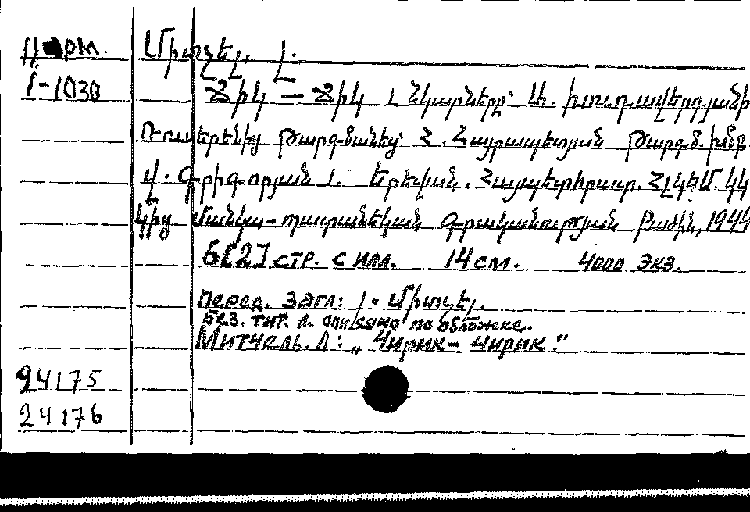 Միտչել. Լ.
1-1030
Ճիկ — Ճիկ / Նկարները՝ Ա. Խոտավերդյանի
Ռուսերենից թարգմանեց՝ Հ. Հայրապետյան թարգմ. խմբ.
Վ. Գրիգորյան /. Երևան. Հայպետհրատ. ՀԼԿԵՄ ԿԿ
կից մանկա-պատանեկան գրականության բաժին, 1944
6[2] стр. с илл. 14 см. 4000 экз.
Перед. загл: Լ. Միտչել.
Без. тит. л. описано по обложке.
Митчель. Л: „Чирик – чирик."
94175
24176